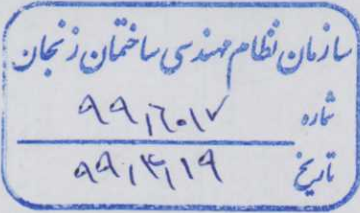 سازمان نظام مهندسی ساختمان زنجان
شماره ۹۹٫۶۰۱۷
تاریخ ۹۹٫۴٫۱۹